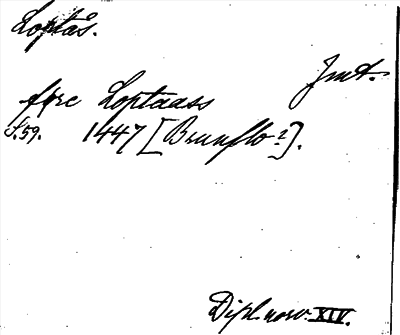 Loptås.
Jmt.
fore Loptaass
S.59. 1447 [Brunflo?].
Dipl. norv. XIV.